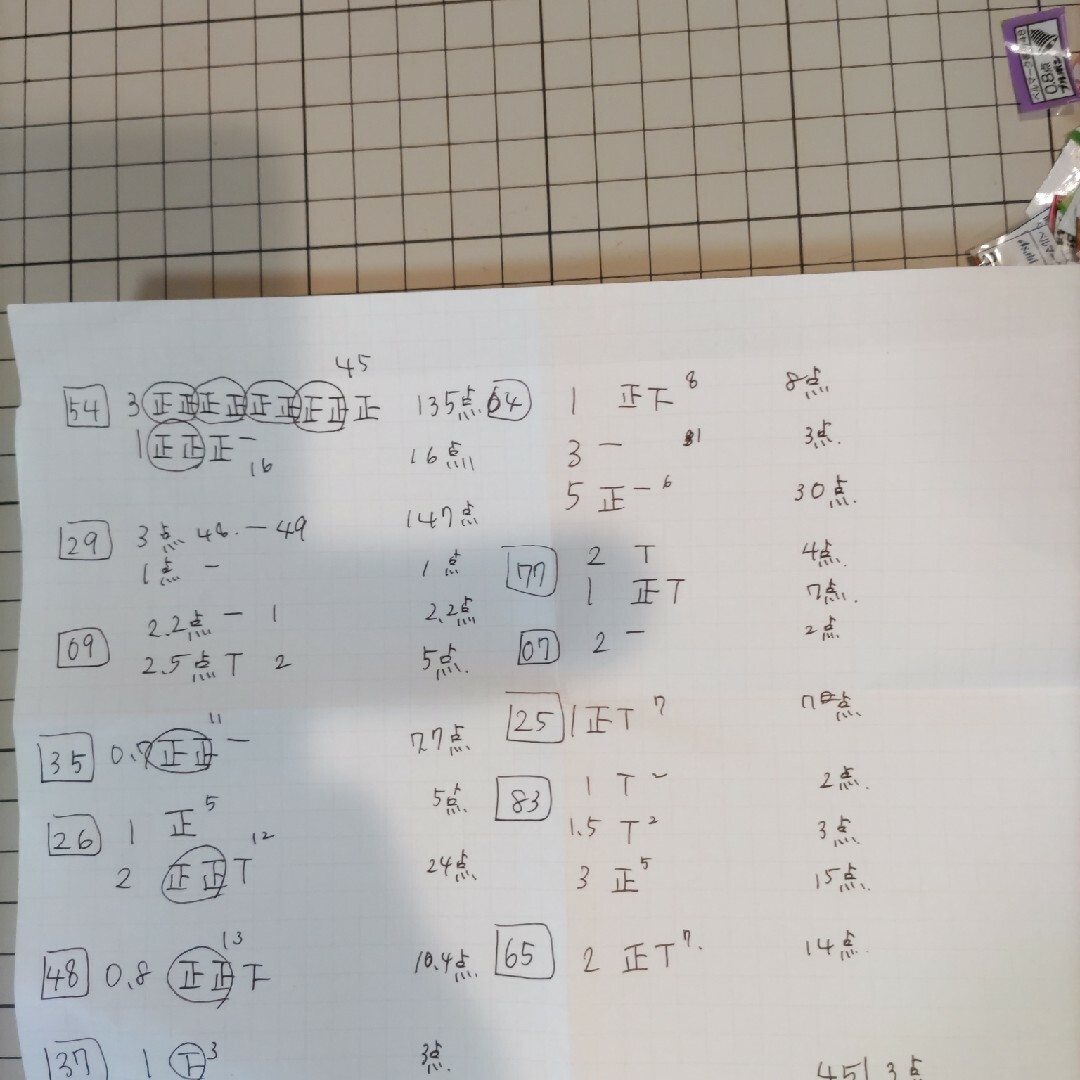 ベルマーク
0.8点
ブルボン
45
54 3 正正正正正正正正正 135点
1 正正正一 16 16点
29 3点 48. 一 49 147点
1点 一 1点
09 2.2点 一 1 2.2点
2.5点 T 2 5点.
35 0.7 正正一 11 7.7点
26 1 正 5 5点
2 正正T 12 24点
48 0.8 正正下 13 10.4点
37 1 下 3 3点
64 1 正下 8 8点
3 一 1 3点.
5 正一 6 30点.
77 2 T 4点.
1 正T 7点.
07 2 一 2点
25 1 正T 7 7点
83 1 T 2 2点.
1.5 T 2 3点.
3 正 5 15点.
65 2 正T 7. 14点.
451.3点